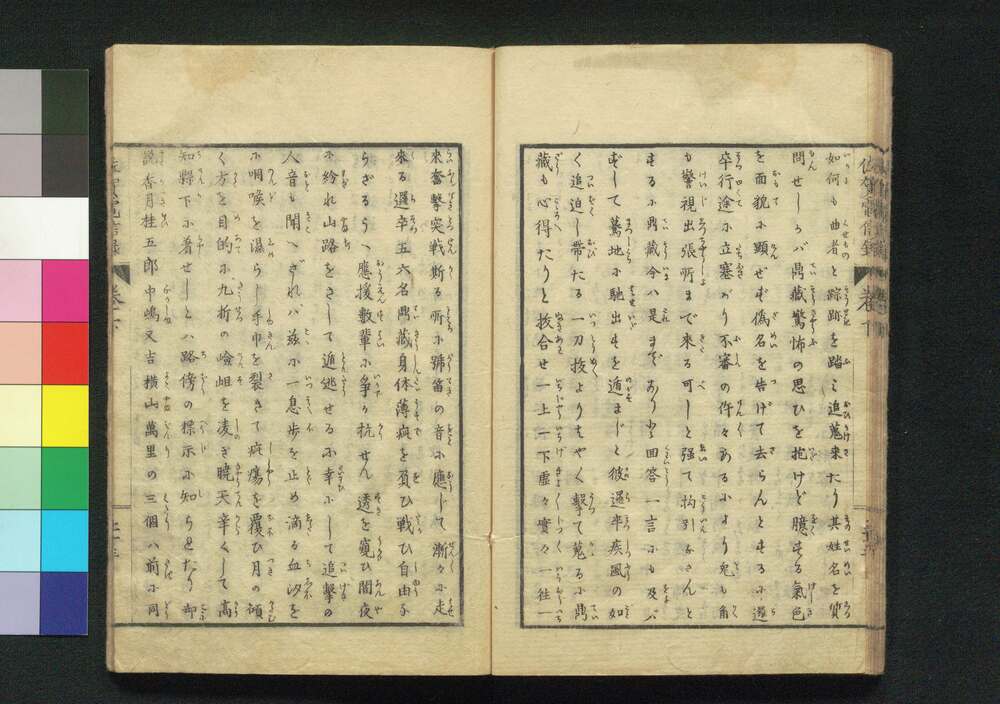 如何も曲者と踪跡を踏み追蒐来たり其姓名を質
問せしかバ鼎藏驚怖の思ひを抱けど臆する氣色
を面貌に顕せず偽名を告げて去らんとするに邏
卒行途に立塞がり不審の件々あるにより兎も角
も警視出張所まで来る可しと强て拘引なさんと
するに鼎藏今ハ是までなり回答一言にも及バ
ずして驀地に馳出すを遁まじと彼邏卒疾風の如
く追迫し帯たる一刀抜よりはやく撃て蒐るに鼎
藏も心得たりと抜合せ一上一下虚々實々一往一
來奮擊突戦斯る所に號笛の音に應じて漸々に走
來る邏卒五六名鼎藏身体薄疵を負ひ戦ひ自由な
らざるうへ應援數輩に爭か抗せん透を窺ひ闇夜
に紛れ山路をさして逃逃せるに幸にして追擊の
人音も聞へざれバ茲に一息歩を止め滴る血汐を
に咽喉を濕らし手巾を裂きて疵瘍を覆ひ月の傾
く方を目的に九折の嶮岨を凌ぎ曉天辛くして高
知縣下に着せしとハ路傍の標示に知られたり却
説杳月桂五郎中嶋又吉横山萬里の三個ハ前に同